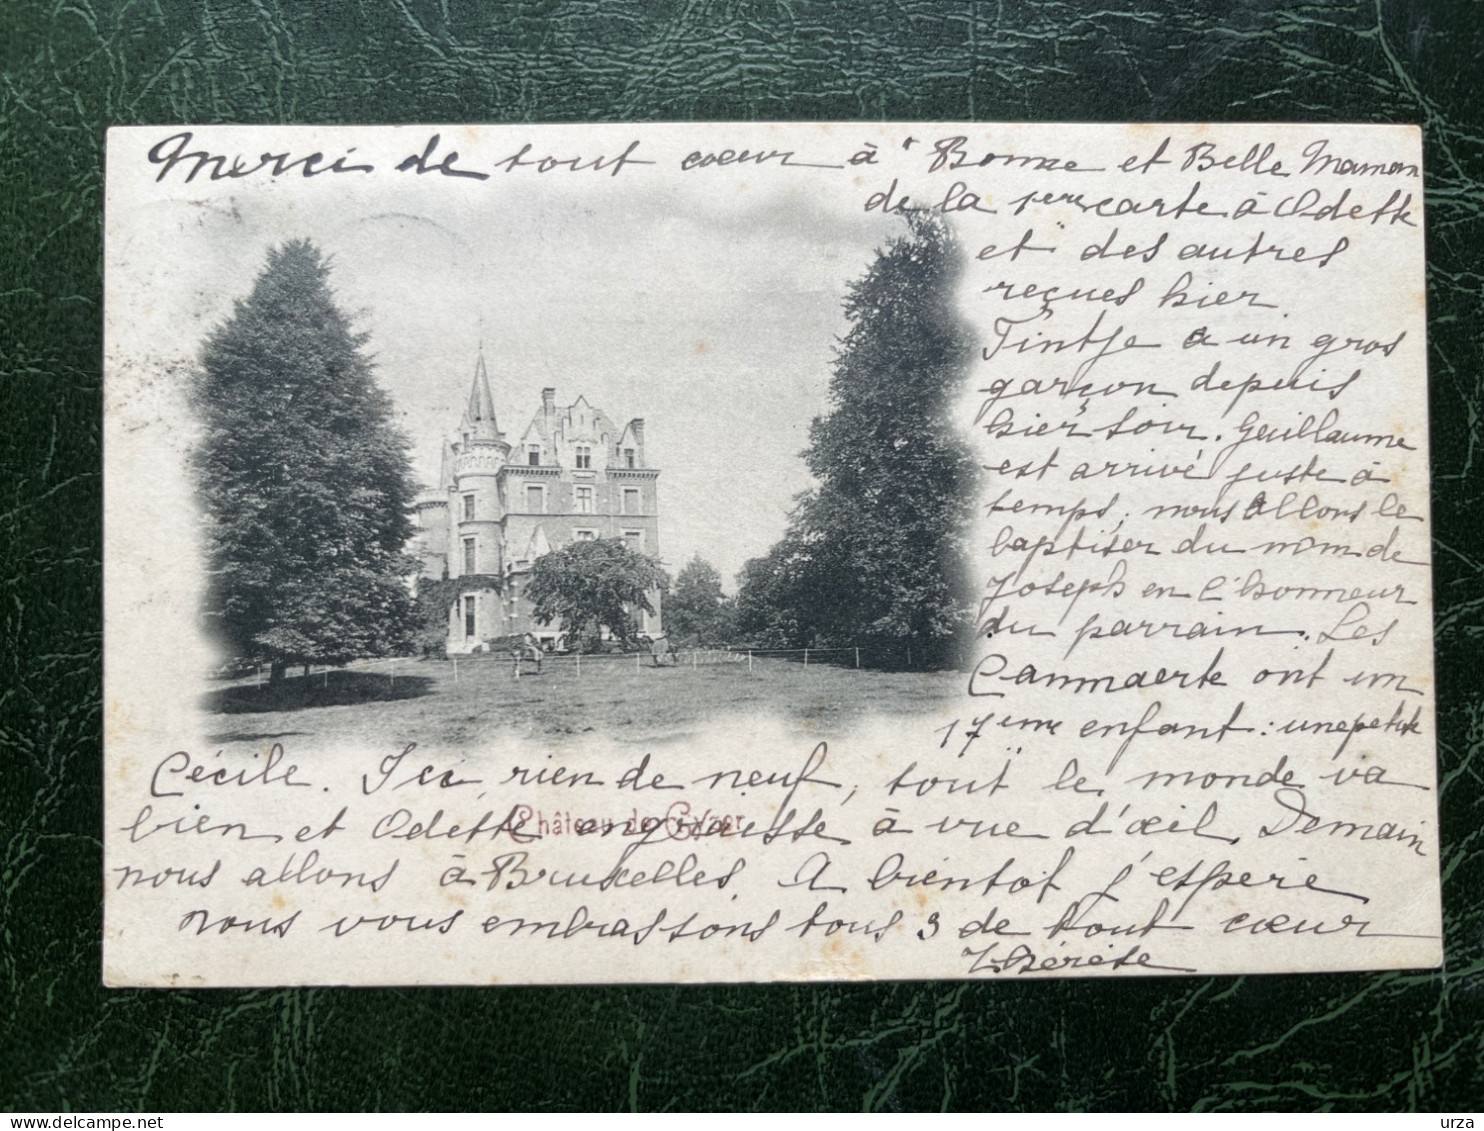 Merci de tout cœur à Bonne et Belle Maman
de la 1ère carte à Odette
et des autres
reçues hier.
Tintje a un gros
garçon depuis
hier soir. Guillaume
est arrivé juste à
temps; nous allons le
baptiser du nom de
Joseph en l'honneur
du parrain. Les
Cammaerte ont un
17ème enfant : une petite
Cécile. Ici, rien de neuf, tout le monde va
bien et Odette engraisse à vue d'œil. Demain
Château de Gyzer
nous allons à Bruxelles. A bientôt j'espère
nous vous embrassons tous 3 de tout cœur
Thérèse
urza